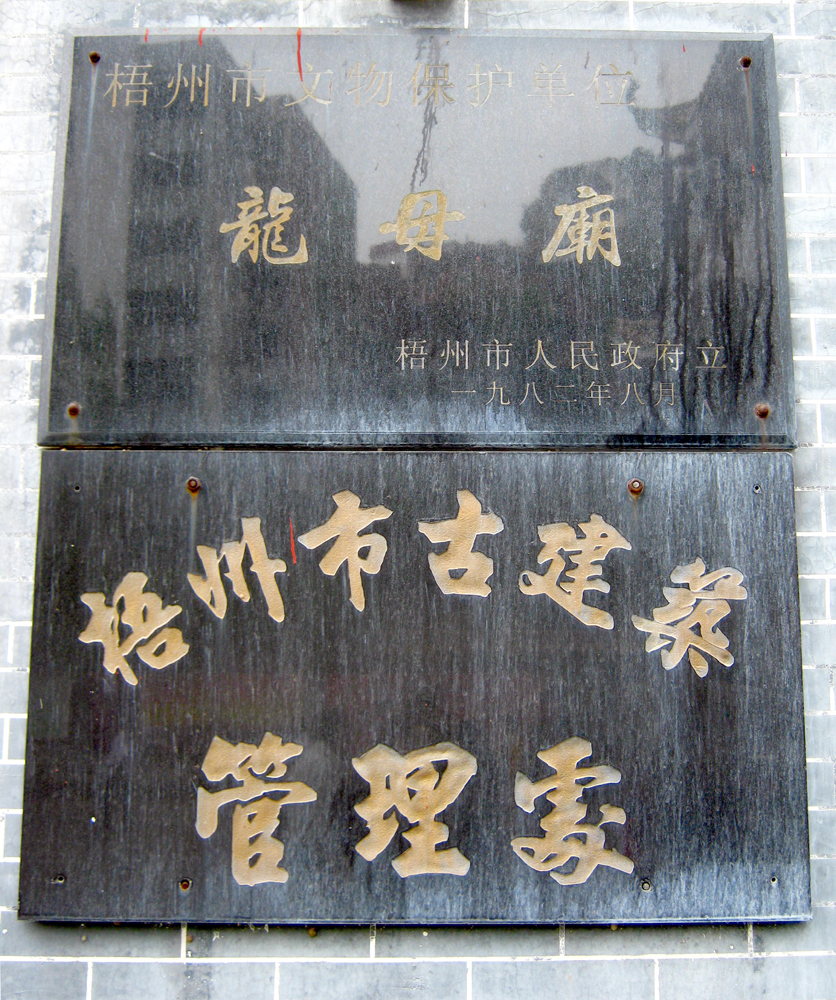 梧州市文物保护单位
龍母廟
梧州市人民政府立
一九八二年八月
梧州市古建築
管理處